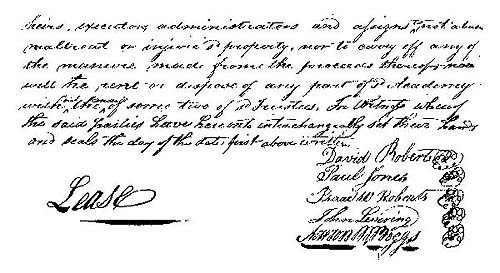 heirs, executors administrators and assigns not abuse
maltreat or injure sd property, nor to carry off any of
the manure made frome the proceeds thereof, nor
will the rent or dispose of any part of sd Academy
with the of some two of sd Trustees, In Witness whereof
the said parties have hereunto interchangeably set their hands
and seals the day of the date first above written
David Roberts
Paul Jones
Isaac W Roberts
John Levering
Anson Boggs
Lease